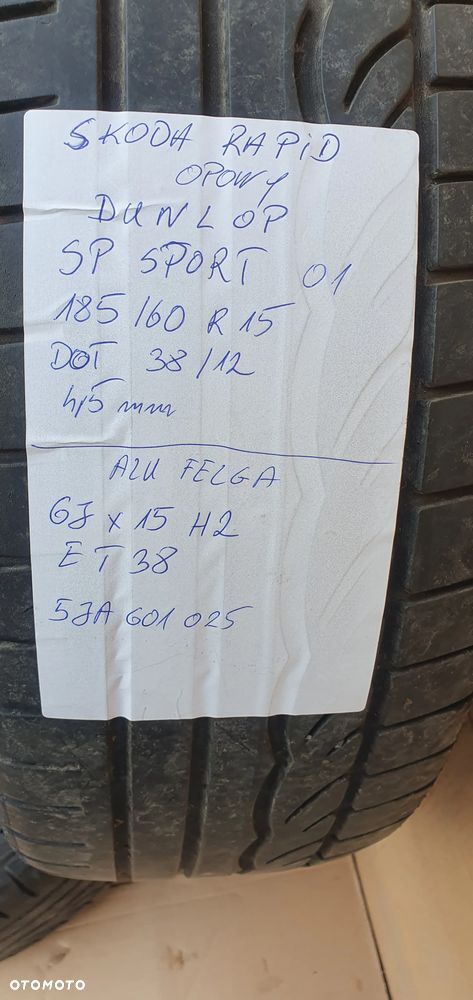 SKODA RAPID
OPONY
DUNLOP
SP SPORT 01
185/60 R 15
DOT 38/12
4,5 mm
ALU FELGA
6J x 15 H2
ET 38
5JA 601 025
OTOMOTO